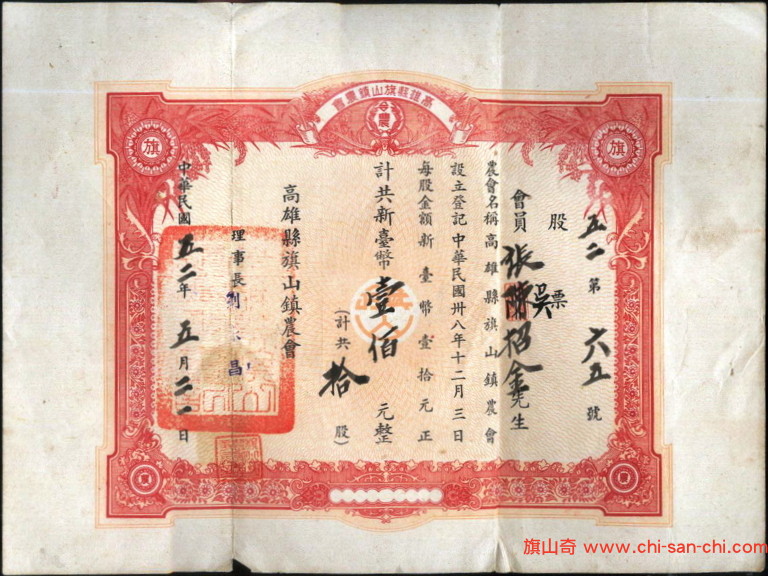 高雄縣旗山鎮農會
農
旗
旗
五二 第 六五 號
股票
會員 張陳招金先生
吳
農會名稱高雄縣旗山鎮農會
設立登記中華民國卅八年十二月三日
每股金額新臺幣壹拾元正
計共新臺幣壹佰元整
(計共拾股)
高雄縣旗山鎮農會
理事長劉 昌
中華民國五二年五月二一日
旗山奇 www.chi-san-chi.com